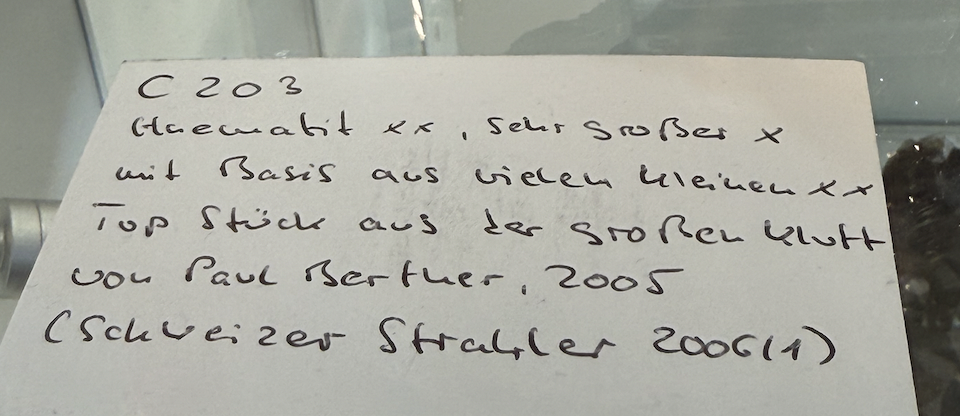 C 203
Haematit xx, sehr großer x
mit Basis aus vielen kleinen xx
Top Stück aus der großen Kluft
von Paul Berther, 2005
(Schweizer Strahler 2006(1)